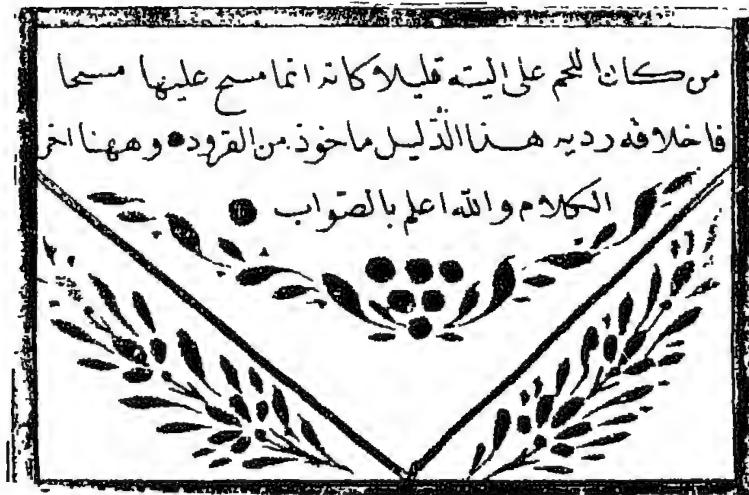 من كان اللحم على اليته قليلا وكانه انما مسح عليها مسحا
فاخلاقه رديه هذا الدليل ماخوذ من القرود وههنا اخر
الكلام والله اعلم بالصواب